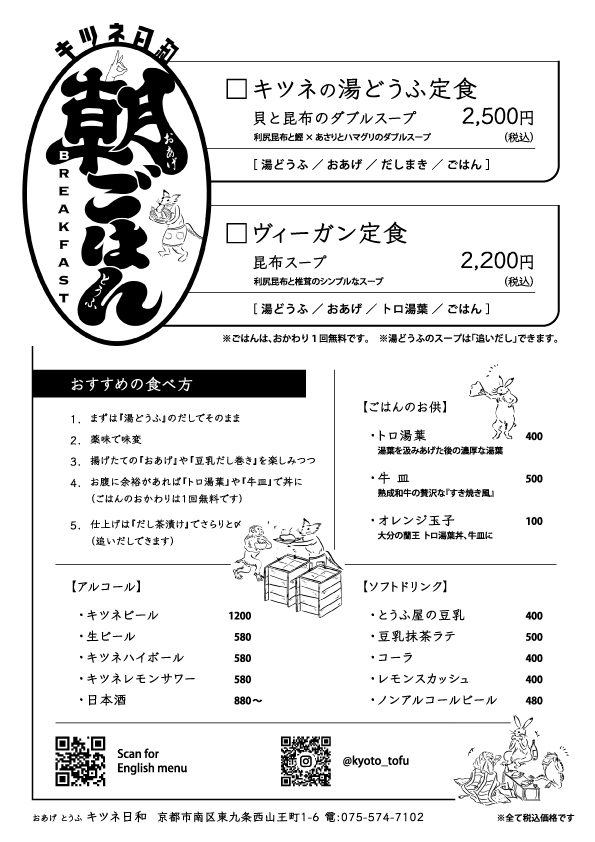 キツネ日和
朝ごはん
おあげ
とうふ
BREAKFAST
□ キツネの湯どうふ定食
貝と昆布のダブルスープ 2,500円
利尻昆布と鰹 × あさりとハマグリのダブルスープ (税込)
[ 湯どうふ ／ おあげ ／ だしまき ／ ごはん ]
□ ヴィーガン定食
昆布スープ 2,200円
利尻昆布と椎茸のシンプルなスープ (税込)
[ 湯どうふ ／ おあげ ／ トロ湯葉 ／ ごはん ]
※ごはんは、おかわり1回無料です。 ※湯どうふのスープは「追いだし」できます。
おすすめの食べ方
1. まずは『湯どうふ』のだしでそのまま
2. 薬味で味変
3. 揚げたての『おあげ』や『豆乳だし巻き』を楽しみつつ
4. お腹に余裕があれば『トロ湯葉』や『牛皿』で丼に
(ごはんのおかわりは1回無料です)
5. 仕上げは『だし茶漬け』でさらりと〆
(追いだしできます)
【ごはんのお供】
・トロ湯葉 400
湯葉を汲みあげた後の濃厚な湯葉
・牛 皿 500
熟成和牛の贅沢な『すき焼き風』
・オレンジ玉子 100
大分の蘭王 トロ湯葉丼、牛皿に
【アルコール】
・キツネビール 1200
・生ビール 580
・キツネハイボール 580
・キツネレモンサワー 580
・日本酒 880〜
【ソフトドリンク】
・とうふ屋の豆乳 400
・豆乳抹茶ラテ 500
・コーラ 400
・レモンスカッシュ 400
・ノンアルコールビール 480
Scan for
English menu
@kyoto_tofu
おあげ とうふ キツネ日和 京都市南区東九条西山王町1-6 電:075-574-7102
※全て税込価格です